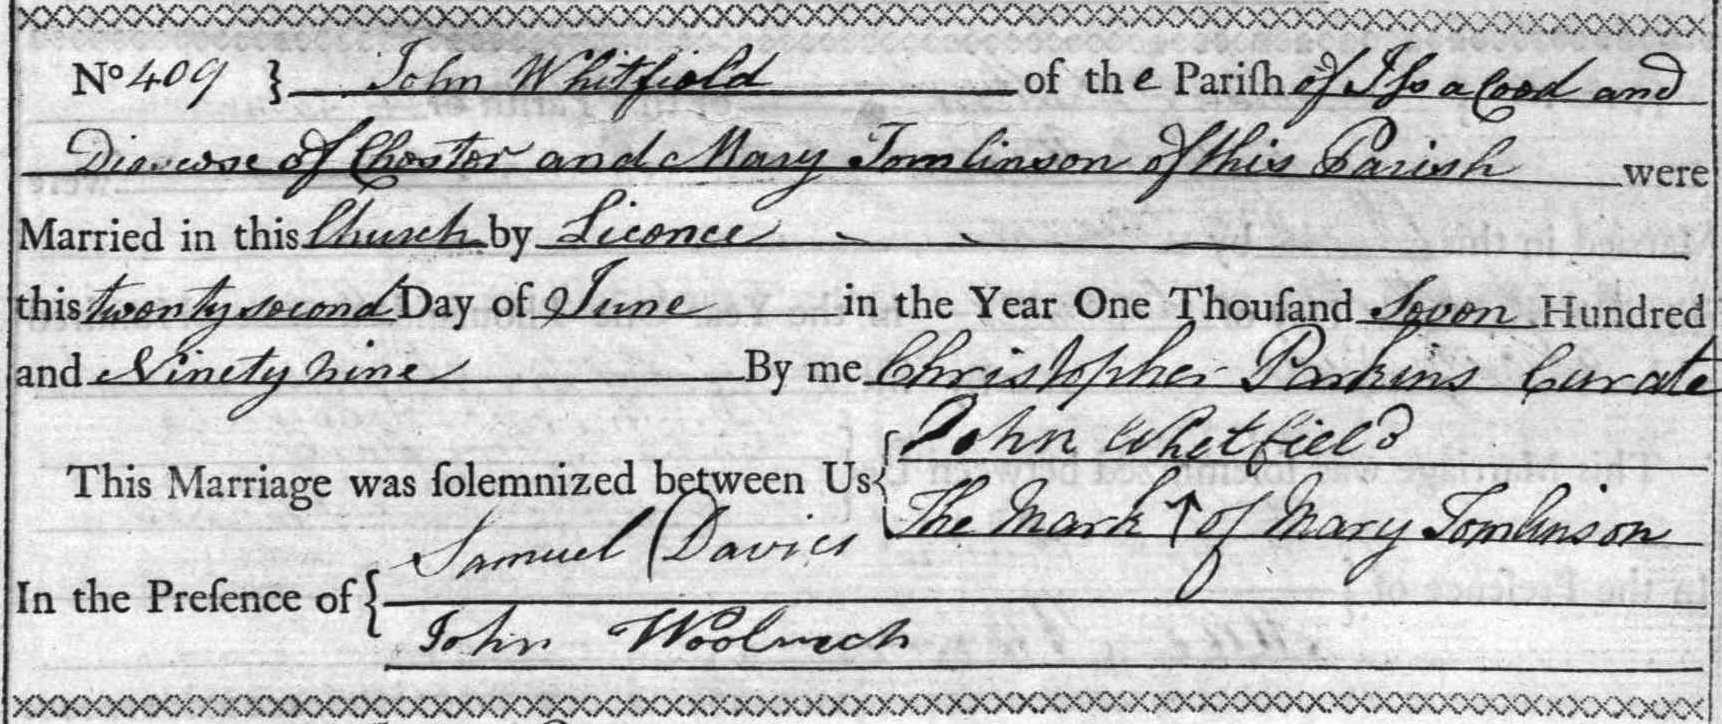 No 409 } John Whitfield of the Pariſh of Issacood and
Diocese of Chester and Mary Tomlinson of this Parish were
Married in this Church by Licence
this twenty second Day of June in the Year One Thouſand Seven Hundred
and Ninety nine By me Christopher Parkins Curate
This Marriage was ſolemnized between Us { John Whetfield
The Mark ↑ of Mary Tomlinson
In the Preſence of { Samuel Davies
John Woolrech